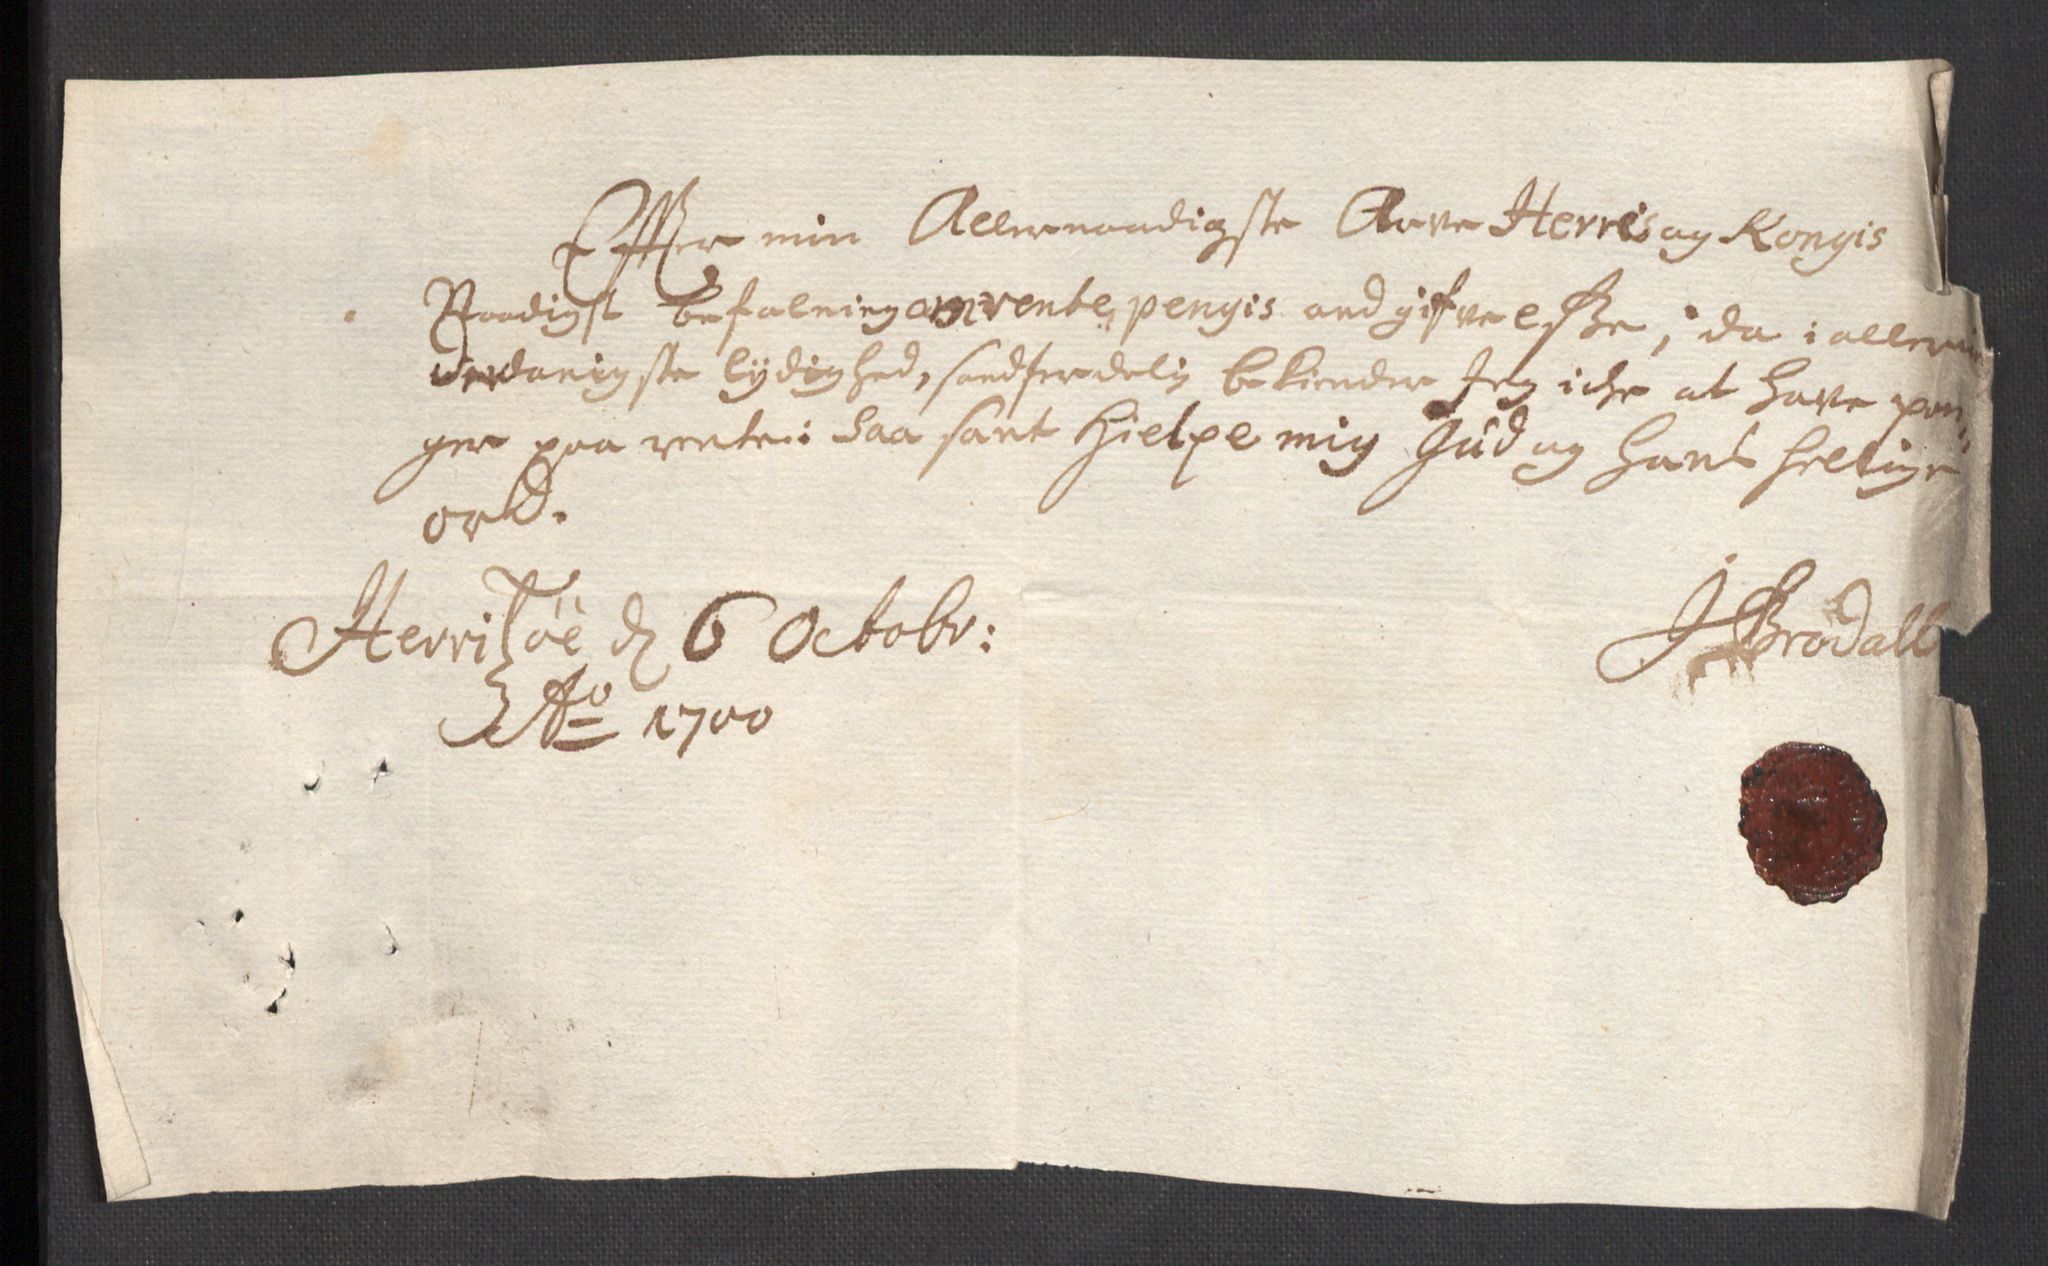 Effter min Allernaadigste Arve Herris og Kongis
Naadigst befalning om rente pengis andgifvelsse, da i allerun
derdanigste lydighed, sandferdelig bekiender Jeg iche at have pen-
ger paa rente: Saa sant Hielpe mig Gud og hans hellige
ord.
Herrisøe d 6 Octobr:
Ao 1700
J Brodall